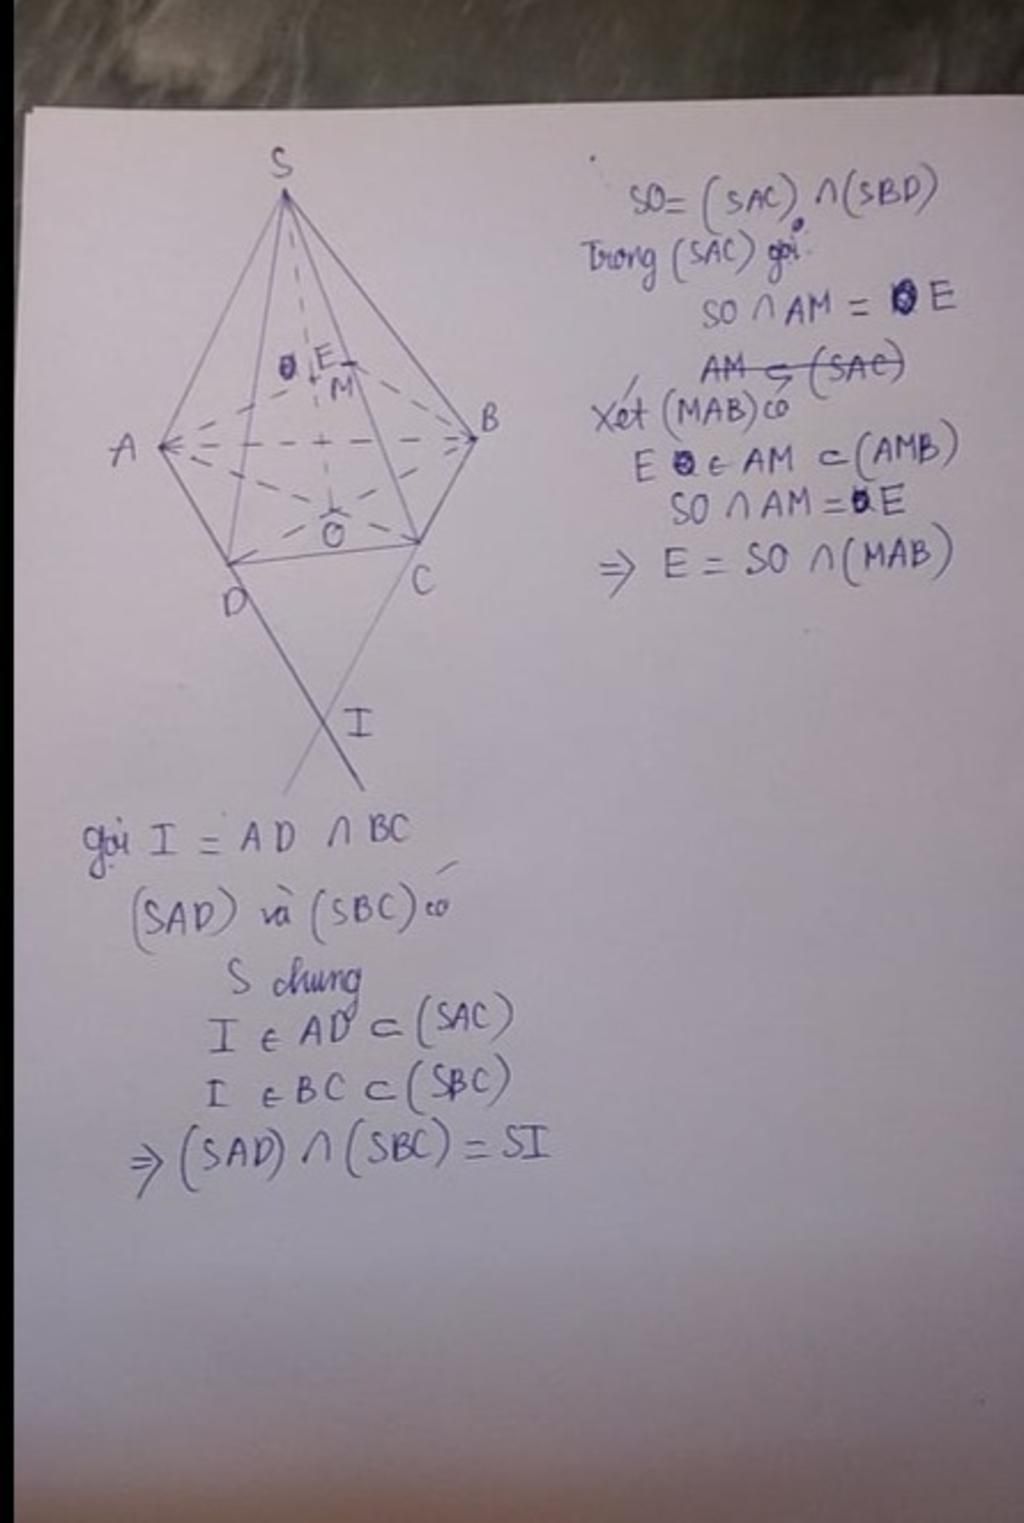 S
E
M
A
B
O
D
C
I
SO = (SAC) ∩ (SBD)
Trong (SAC) gọi
SO ∩ AM = E
AM ⊂ (SAC)
Xét (MAB) có
E ∈ AM ⊂ (AMB)
SO ∩ AM = E
⇒ E = SO ∩ (MAB)
gọi I = AD ∩ BC
(SAD) và (SBC) có
S chung
I ∈ AD ⊂ (SAC)
I ∈ BC ⊂ (SBC)
⇒ (SAD) ∩ (SBC) = SI